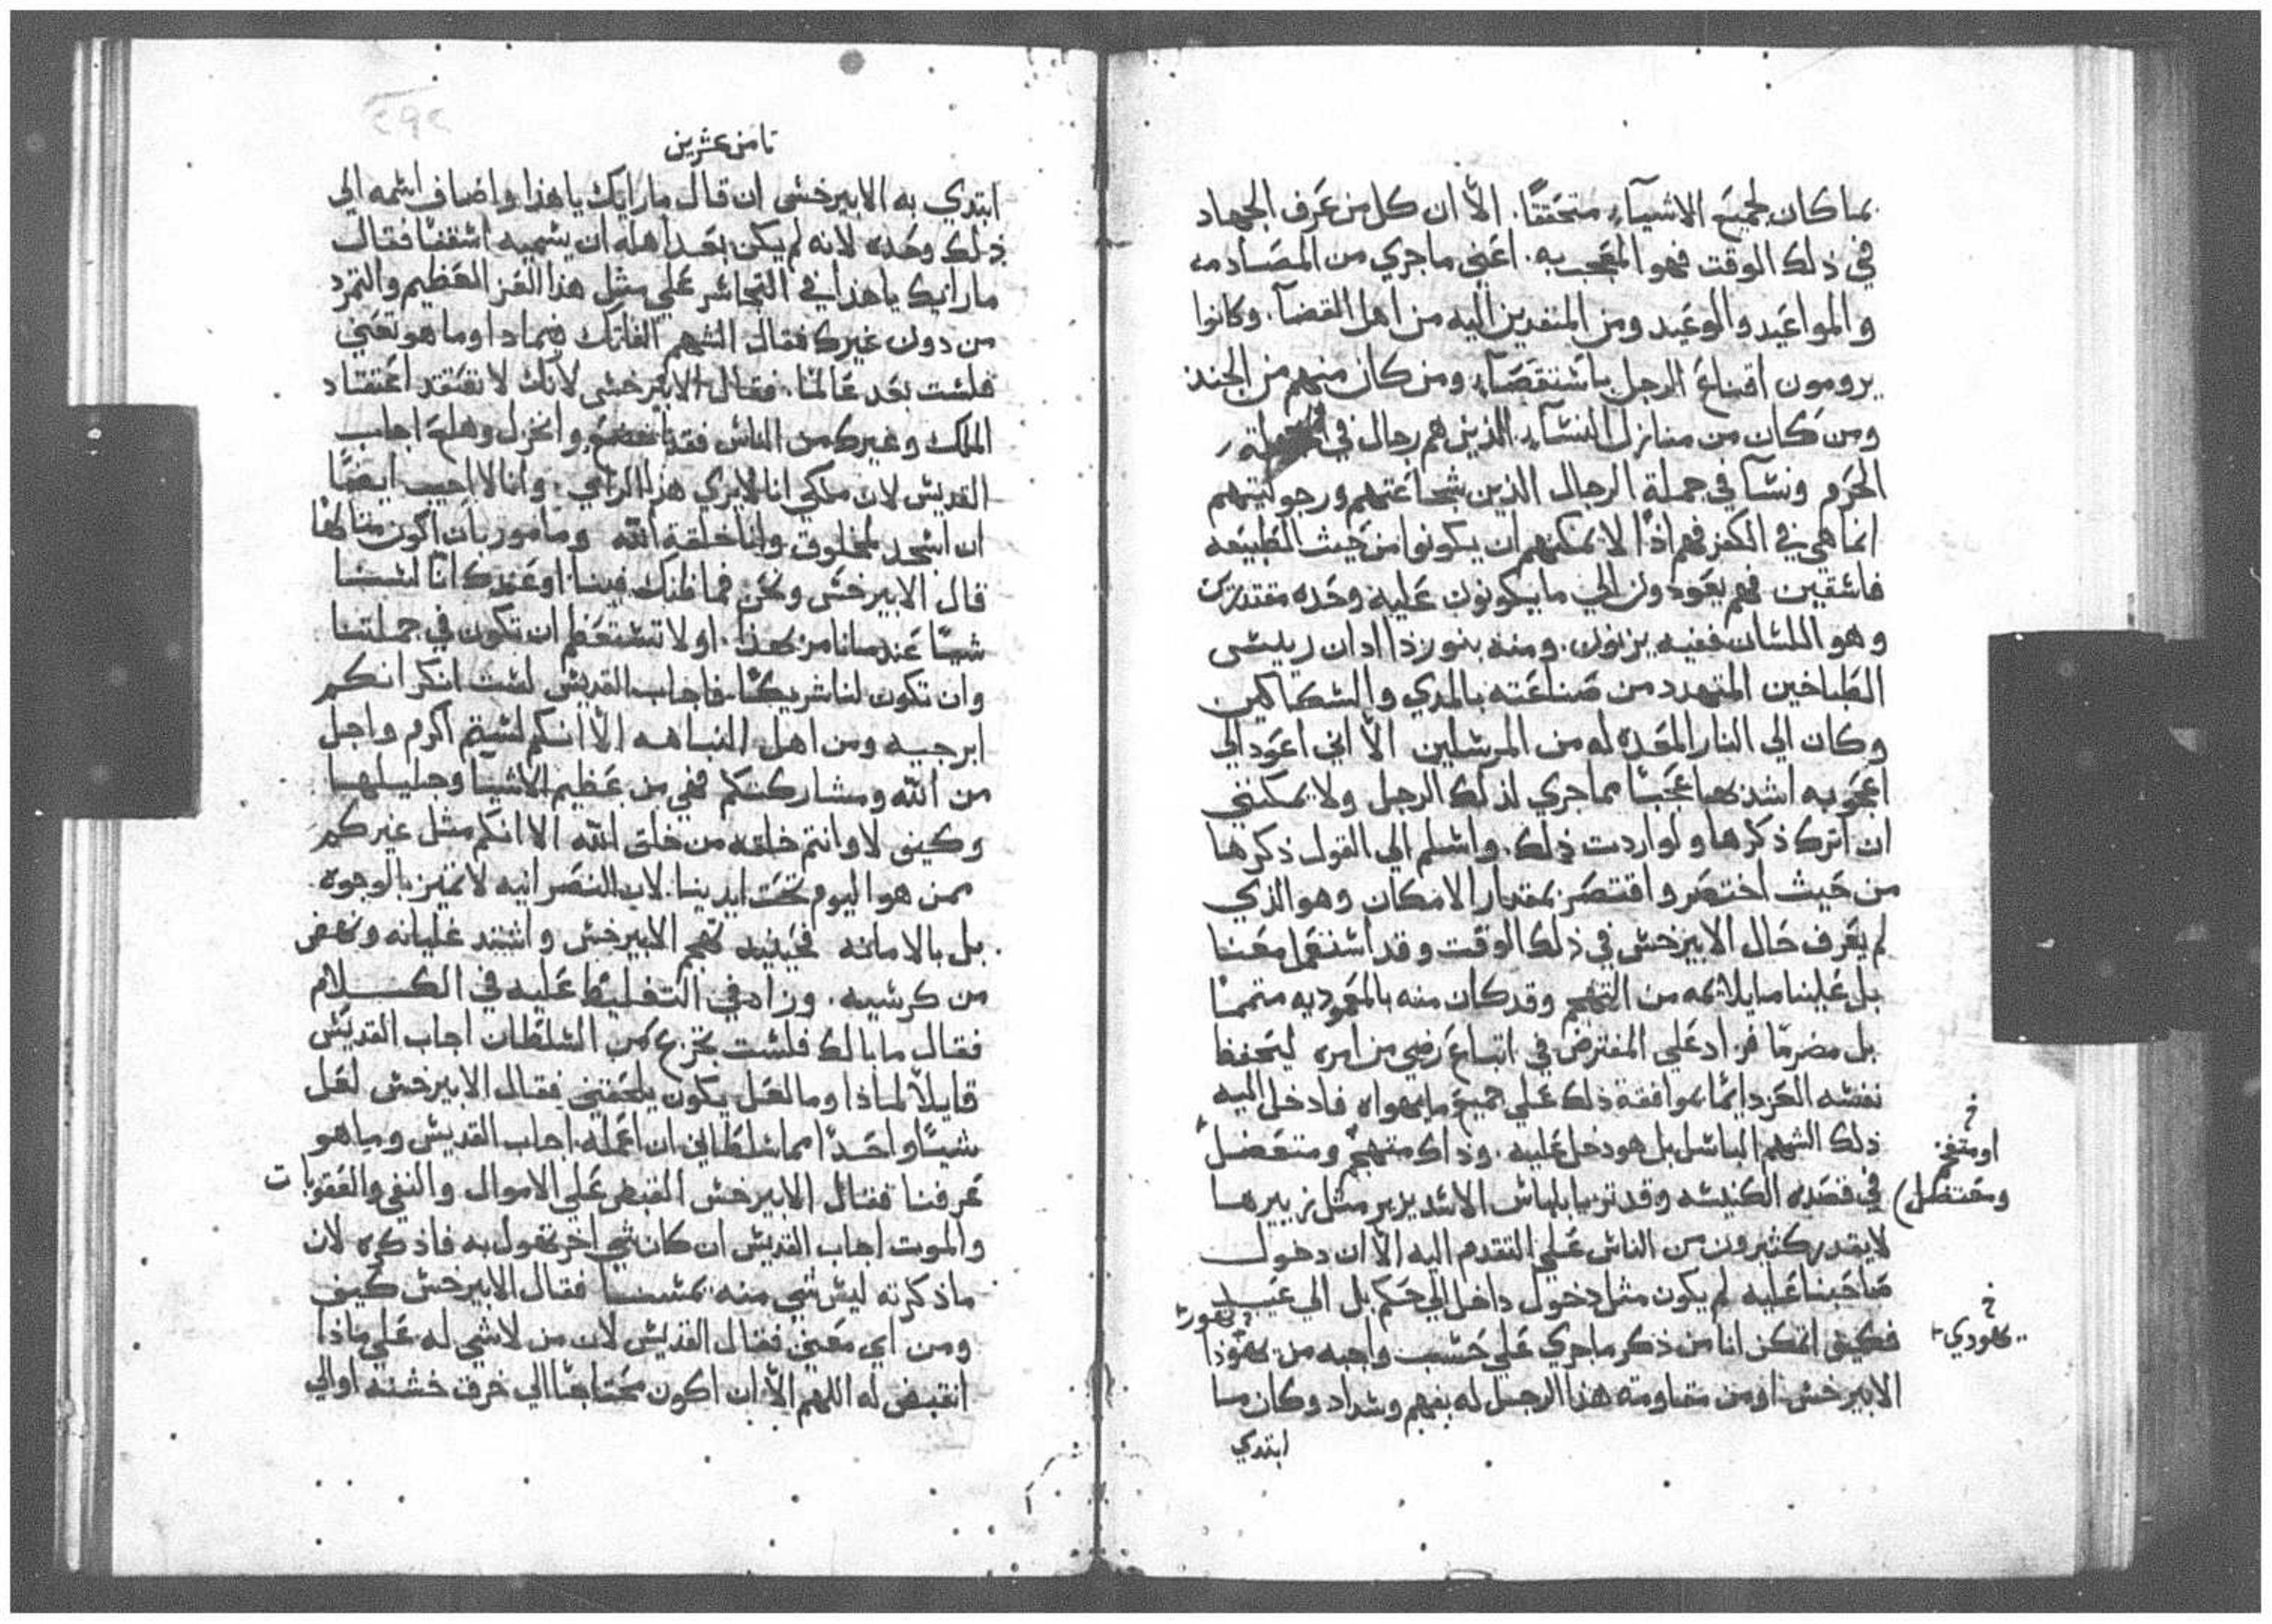 بما كان لجميع الاشيآء متحققًا. الّا ان كل من عرف الجهاد
في ذلك الوقت فهو المعجب به. اعني ما جري من المصادمه
والمواعيد والوعيد ومن المنفدين اليه من اهل القضآ. وكانوا
يرومون اقناع الرجل باستقصآء ومن كان منهم من الجند
ومن كان من منازل النسآء الذين هم رجال في
الحرم ونسآ في جملة الرجال الذين شجاعتهم ورجوليتهم
انما هي في الكفر فهم اذًا لا يمكنهم ان يكونوا من حيث الطبيعه
فاسقين فهم يعودون الي ما يكونون عليه وحده مقتدرين
وهو اللسان ففيه يزنون. ومنه بنوزردان ريس
الطباخين المتهدد من صناعته بالمدي والسكاكين
وكان الي النار المعده له من المرسلين الّا اني اعود الي
اعجوبه اشدها عجبًا مما جري لذلك الرجل ولا يمكنني
ان اترك ذكرها ولو اردت ذلك. واسلم الي القول ذكرها
من حيث اختصر واقتصر بمقدار الامكان وهو الذي
لم يعرف حال الابيرخس في ذلك الوقت وقد استعمل معنا
بل علينا ما يلائمه من التهجم وقد كان منه بالمعموديه متممًا
بل مضرمًا فزاد علي المفترض في اتباع رضي من امره ليحفظ
نفسه العز دائمًا بموافقة ذلك علي جميع ما يهواه فادخل اليه
ذلك الشهم الباسل بل هو دخل عليه. وذاك متهجم ومتعضل
في قصده الكنيسه وقد تزيا بلباس الاسد يزير مثل زييرها
لا يقدر كثيرون من الناس علي التقدم اليه الّا ان دخول
صاحبنا عليه لم يكون مثل دخول داخل الي حكم بل الي عيد
فكيف اتمكن انا من ذكر ما جري علي حسب واجبه من تهور
الابيرخس او من مقاومة هذا الرجل له بفهم وسداد وكان ما
ابتدي
او متنفخ
ومتعظل
تهودي
ثامن عشرين
ابتدي به الابيرخس ان قال ما رايك يا هذا واضاف اسمه الي
ذلك وحده لانه لم يكن بعد اهله ان يسميه اسقفًا فقال
ما رايك يا هذا في التجاسر علي مثل هذا العز العظيم والتمرد
من دون غيرك فقال الشهم الفاتك فيماذا وما هو تعني
فلست بعد عالمًا. فقال الابيرخس لانك لا تعتقد اعتقاد
الملك وغيرك من الناس فقد اتضع وانخزل وهلع اجاب
القديس لان ملكي انا لا يري هذا الراي. وانا لا احب ايضًا
ان اسجد لمخلوق وانا خلقة الله ومامور بان اكون متالهًا
قال الابيرخس ونحن فما ظنك فينا او عندك انّا لسنا
شيًا عند امرنا بهذا. او لا تستعظم ان تكون في جملتنا
وان تكون لنا شريكًا. فاجاب القديس لست انكر انكم
ابرجيه ومن اهل النباهه الّا انكم لستم اكرم واجل
من الله ومشاركتكم فهي من عظيم الاشيا وجليلها
وكيف لا وانتم خلقه من خلق الله الا انكم مثل غيركم
ممن هو اليوم تحت ايدينا. لان النصرانيه لا تتميز بالوجوه
بل بالامانه فحينيد تهجم الابيرخس واشتد غليانه ونهض
من كرسيه. وزاد في التغليظ عليه في الكلام
فقال ما بالك فلست تجزع من السلطان اجاب القديس
قايلًا لماذا وما لعل يكون يلحقني فقال الابيرخس لعل
شيًا واحدًا مما سلطاني ان اعمله. اجاب القديس وما هو
عرفنا فقال الابيرخس القبض علي الاموال والنفي والعقوبات
والموت اجاب القديس ان كان شي اخر تقول به فاذكره لان
ما ذكرته ليس شي منه يمسنا فقال الابيرخس كيف
ومن اي معني فقال القديس لان من لا شي له علي ماذا
انقبض له اللهم الّا ان اكون محتاجًا الي خرق خشنه اوالي